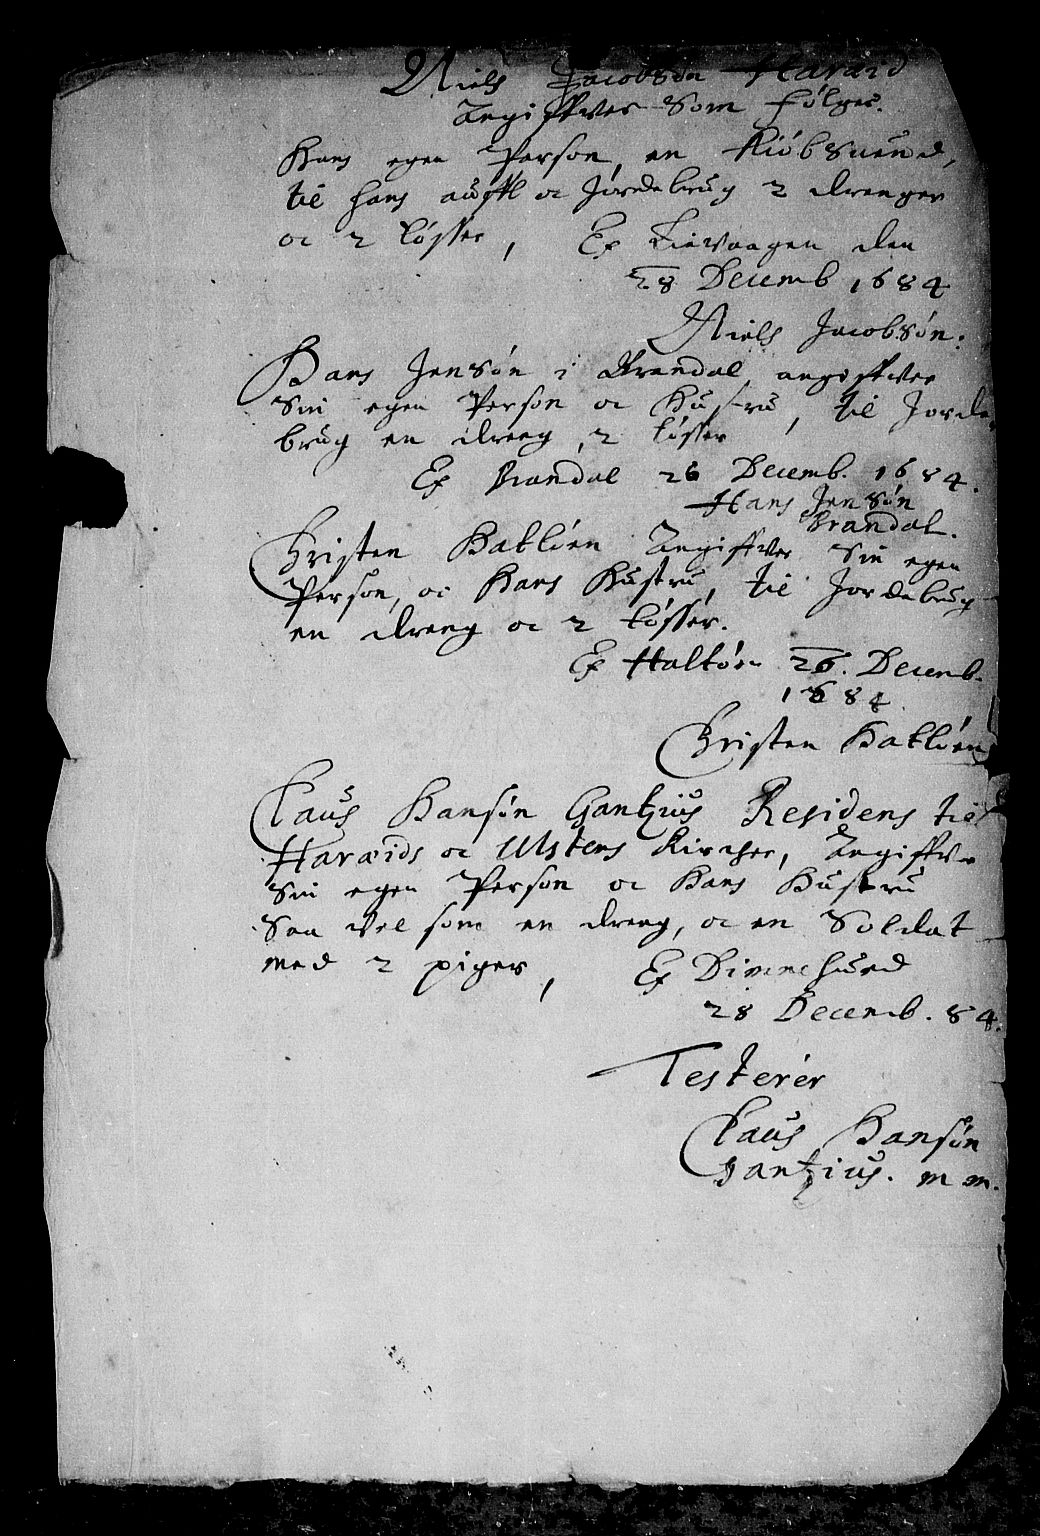 Niels Jacobsøn Haræid
Angiffver som følger.
Hans egen Person, en Kiøbsuend,
til hans auffl oc Jordebrug 2 drenger
oc 2 tøsser, Ex Lievaagen den
28 Decemb 1684
Niels Jacobsøn.
Hans Jensøn i Brandal angiffver
Sin egen Person oc Hustru, til Jorde
brug en dreng, 2 tøsser
Ex Brandal 26 Decemb. 1684.
Hans Jensøn
Brandal.
Christen Hatløen Angiffver Sin egen
Person, oc Hans Hustru, til Jordebrug
en dreng oc 2 tøsser.
Ex Hatløen 26. Decemb.
1684
Christen Hatløen
Claus Hansøn Gantzius Residens til
Haræids oc Ulstens Kircher, Angiffver
Sin egen Person oc Hans Hustru
Saa vel som en dreng, oc en Soldat
med 2 piger, Ex Dimnesund
28 Decemb. 84.
Testerer
Claus Hansøn
Gantzius. m m.